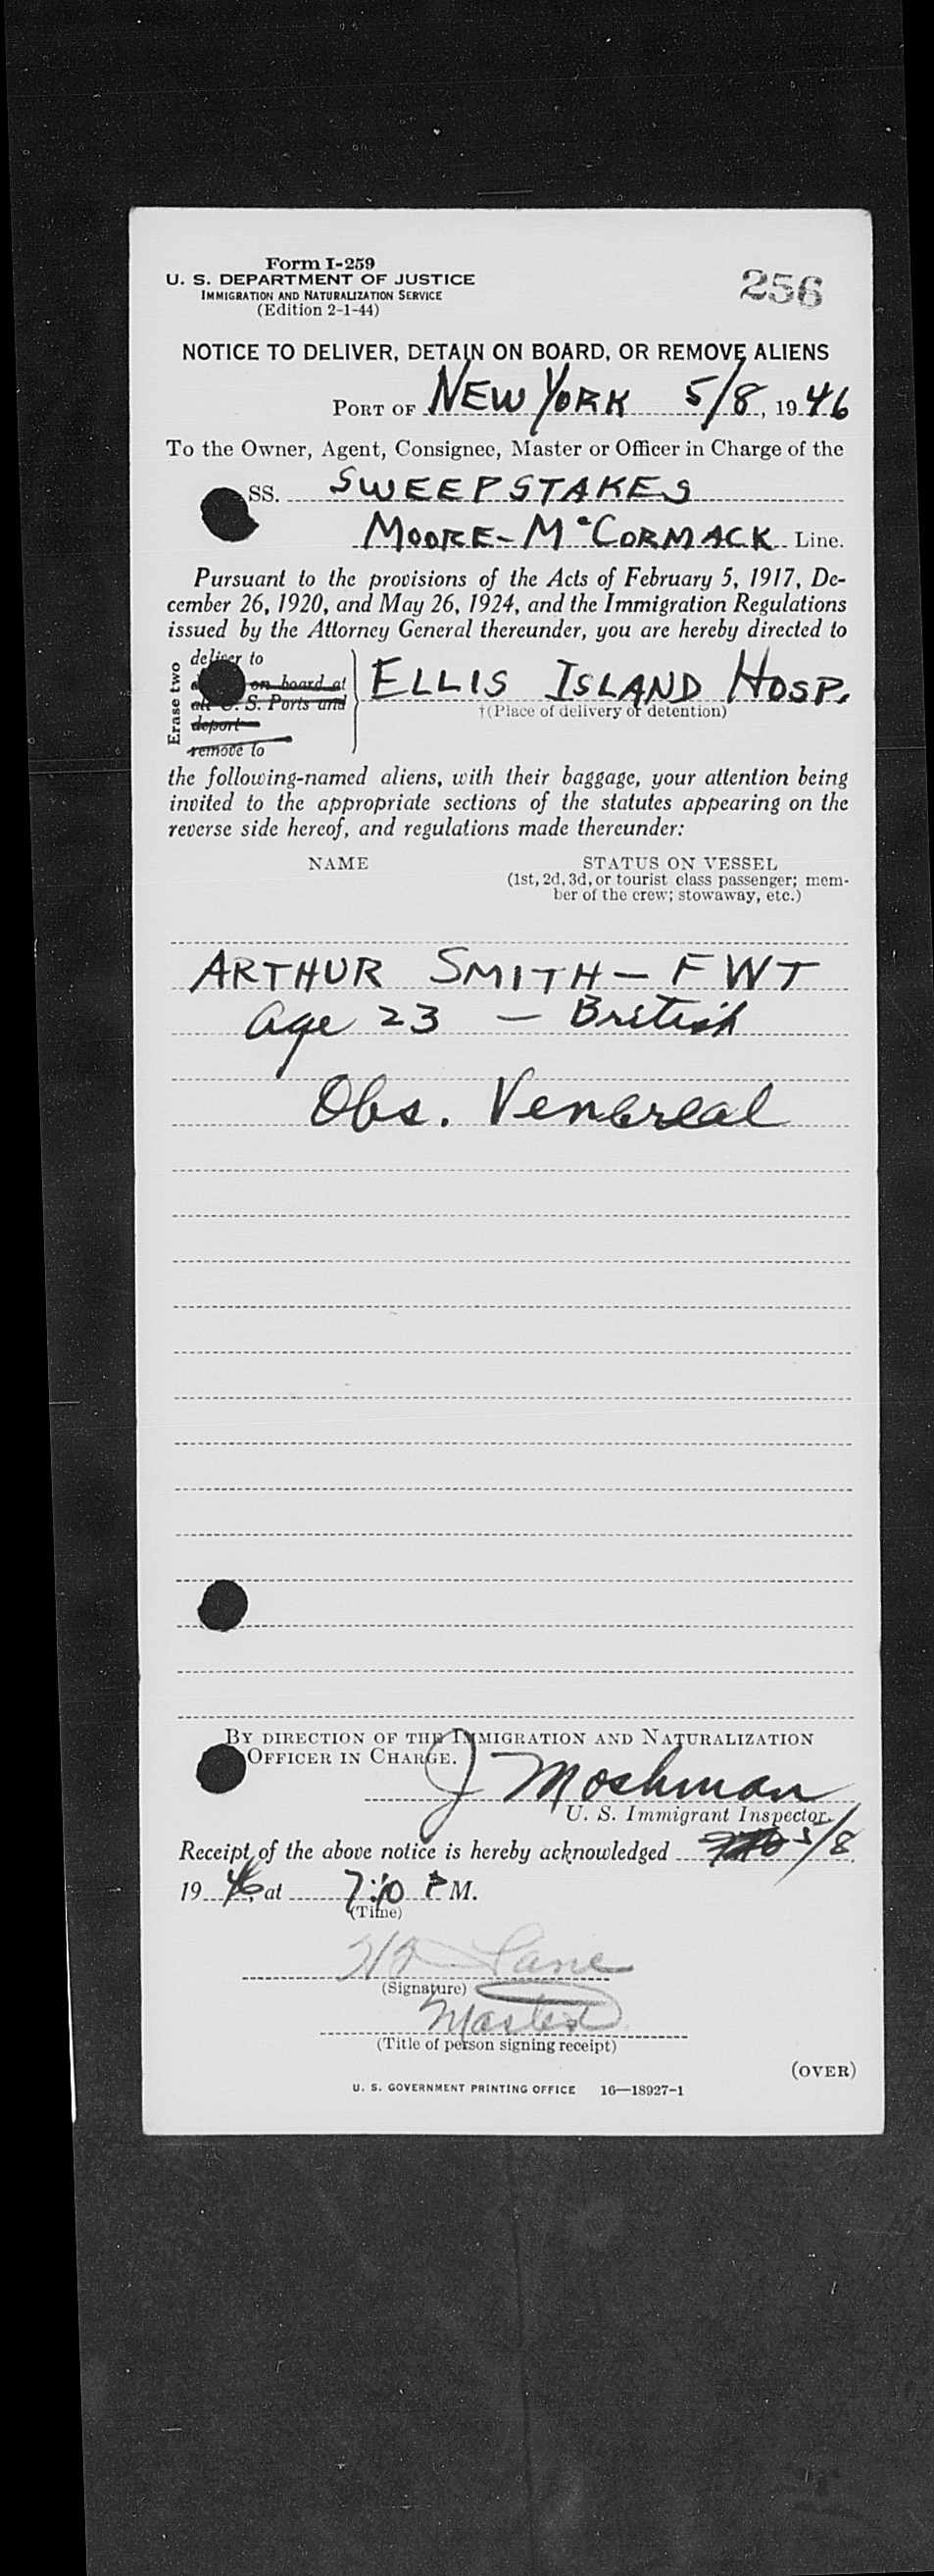 Form I-259
U. S. DEPARTMENT OF JUSTICE
IMMIGRATION AND NATURALIZATION SERVICE
(Edition 2-1-44)
256
NOTICE TO DELIVER, DETAIN ON BOARD, OR REMOVE ALIENS
PORT OF NEW YORK 5/8, 1946
To the Owner, Agent, Consignee, Master or Officer in Charge of the
SS. SWEEPSTAKES
MOORE-McCORMACK Line.
Pursuant to the provisions of the Acts of February 5, 1917, De-
cember 26, 1920, and May 26, 1924, and the Immigration Regulations
issued by the Attorney General thereunder, you are hereby directed to
Erase two
deliver to
on board at
all U. S. Ports and
deport
remove to
ELLIS ISLAND HOSP.
†(Place of delivery or detention)
the following-named aliens, with their baggage, your attention being
invited to the appropriate sections of the statutes appearing on the
reverse side hereof, and regulations made thereunder:
NAME STATUS ON VESSEL
(1st, 2d, 3d, or tourist class passenger; mem-
ber of the crew; stowaway, etc.)
ARTHUR SMITH - FWT
Age 23 - British
Obs. Venereal
BY DIRECTION OF THE IMMIGRATION AND NATURALIZATION
OFFICER IN CHARGE.
J Moshman
U. S. Immigrant Inspector.
Receipt of the above notice is hereby acknowledged 5/8,
1946, at 7:10 P M.
(Time)
Lane
(Signature)
Master
(Title of person signing receipt)
(OVER)
U. S. GOVERNMENT PRINTING OFFICE 16—18927-1